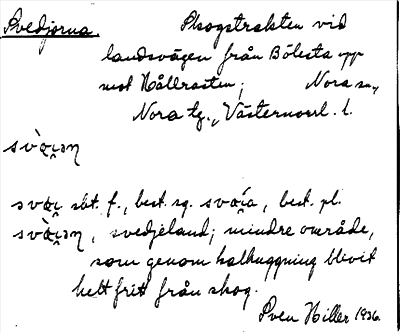 Svedjorna. Skogstrakten vid
landsvägen från Bölesta upp
mot Hållrasten; Nora sn,
Nora tg., Västernorrl. l.
svὰi̯ən
svαi̯ sbt. f., best. sg. svαi̯a, best. pl.
svὰi̯ən, svedjeland; mindre område,
som genom kalhuggning blivit
helt fritt från skog.
Sven Hiller 1936.